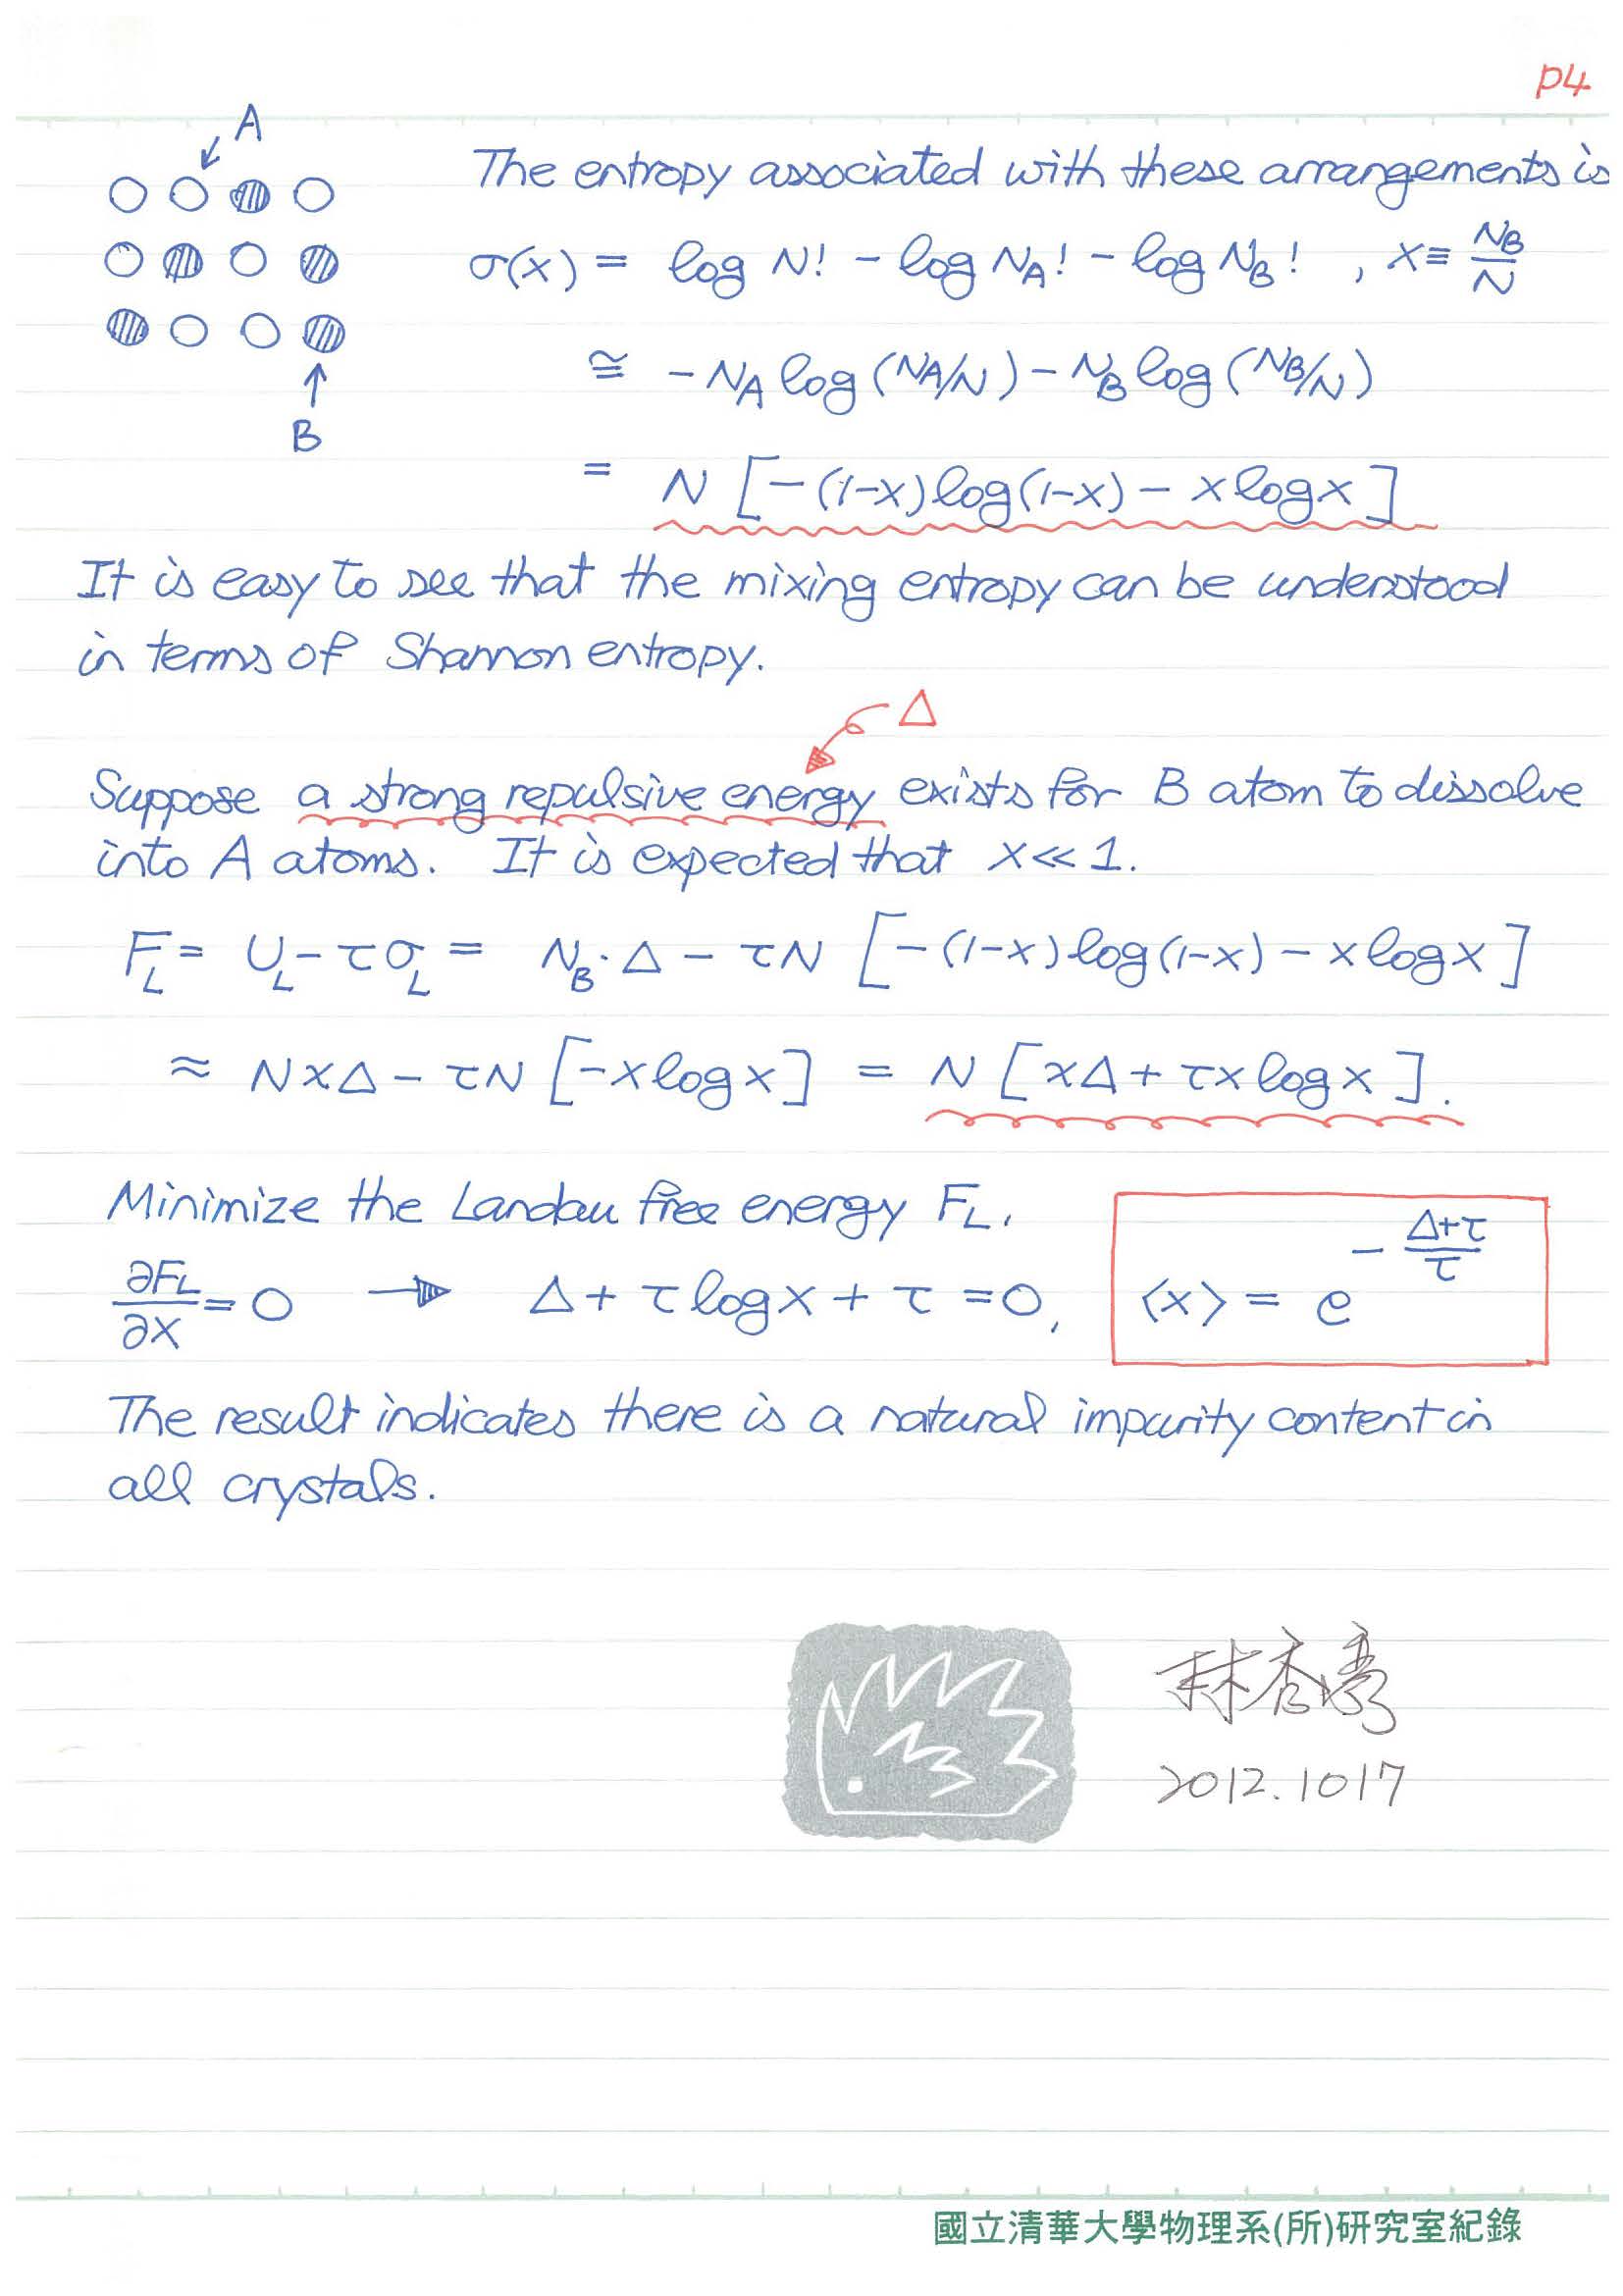 p4
A
The entropy associated with these arrangements is
σ(x) = log N! - log N_A! - log N_B! , x ≡ N_B/N
≅ -N_A log (N_A/N) - N_B log (N_B/N)
B
= N [-(1-x) log(1-x) - x log x]
It is easy to see that the mixing entropy can be understood
in terms of Shannon entropy.
Δ
Suppose a strong repulsive energy exists for B atom to dissolve
into A atoms. It is expected that x << 1.
F_L = U_L - τσ_L = N_B · Δ - τN [-(1-x) log(1-x) - x log x]
≈ NxΔ - τN [-x log x] = N [xΔ + τx log x].
Minimize the Landau free energy F_L,
∂F_L/∂x = 0 → Δ + τ log x + τ = 0, ⟨x⟩ = e^{-(Δ+τ)/τ}
The result indicates there is a natural impurity content in
all crystals.
2012.1017
國立清華大學物理系(所)研究室紀錄